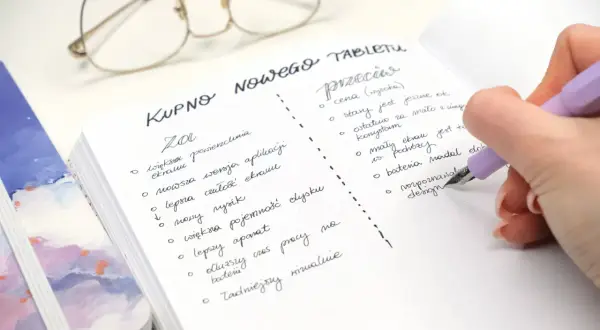 KUPNO NOWEGO TABLETU
Za:
większa powierzchnia
ekranu
nowsza wersja aplikacji
lepsza czułość ekranu
nowy rysik
większa pojemność dysku
lepszy aparat
dłuższy czas pracy na
baterii
ładniejszy wizualnie
przeciw
cena (wysoka)
stary jest jeszcze ok
ostatnio za mało z niego
korzystam
mały ekran jest
w podróży
bateria nadal
design